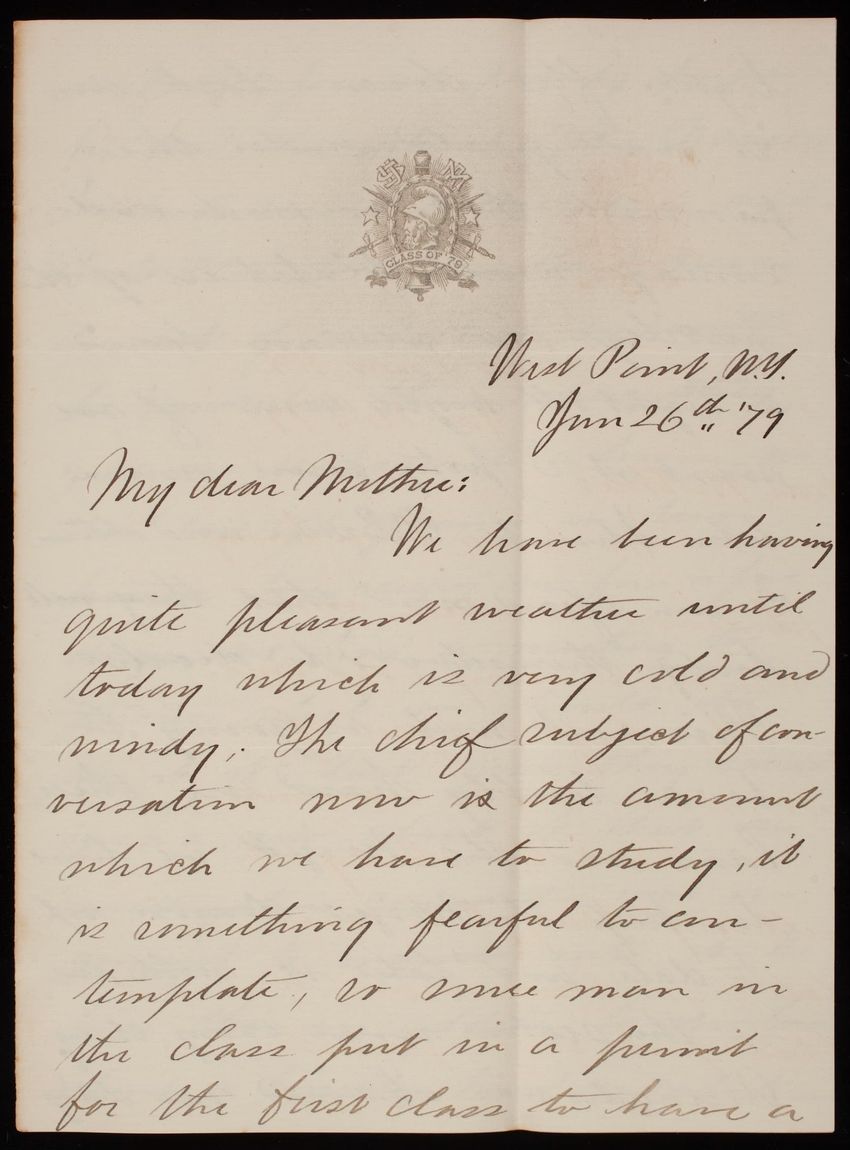 USMA
CLASS OF '79
West Point, N.Y.
Jan 26th '79
My dear Mother:
We have been having
quite pleasant weather until
today which is very cold and
windy. The chief subject of con-
versation now is the amount
which we have to study, it
is something fearful to con-
template, so some man in
the class put in a permit
for the first class to have a